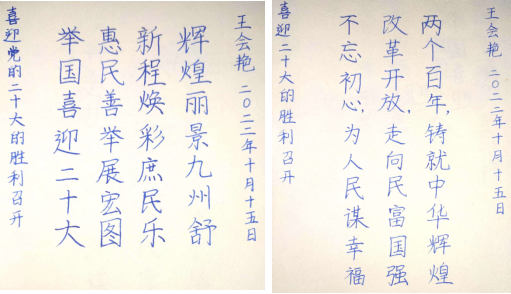 喜迎党的二十大的胜利召开
举国喜迎二十大
惠民善举展宏图
新程焕彩庶民乐
辉煌丽景九州舒
王会艳 二〇二二年十月十五日
喜迎二十大的胜利召开
不忘初心,为人民谋幸福
改革开放,走向民富国强
两个百年,铸就中华辉煌
王会艳 二〇二二年十月十五日